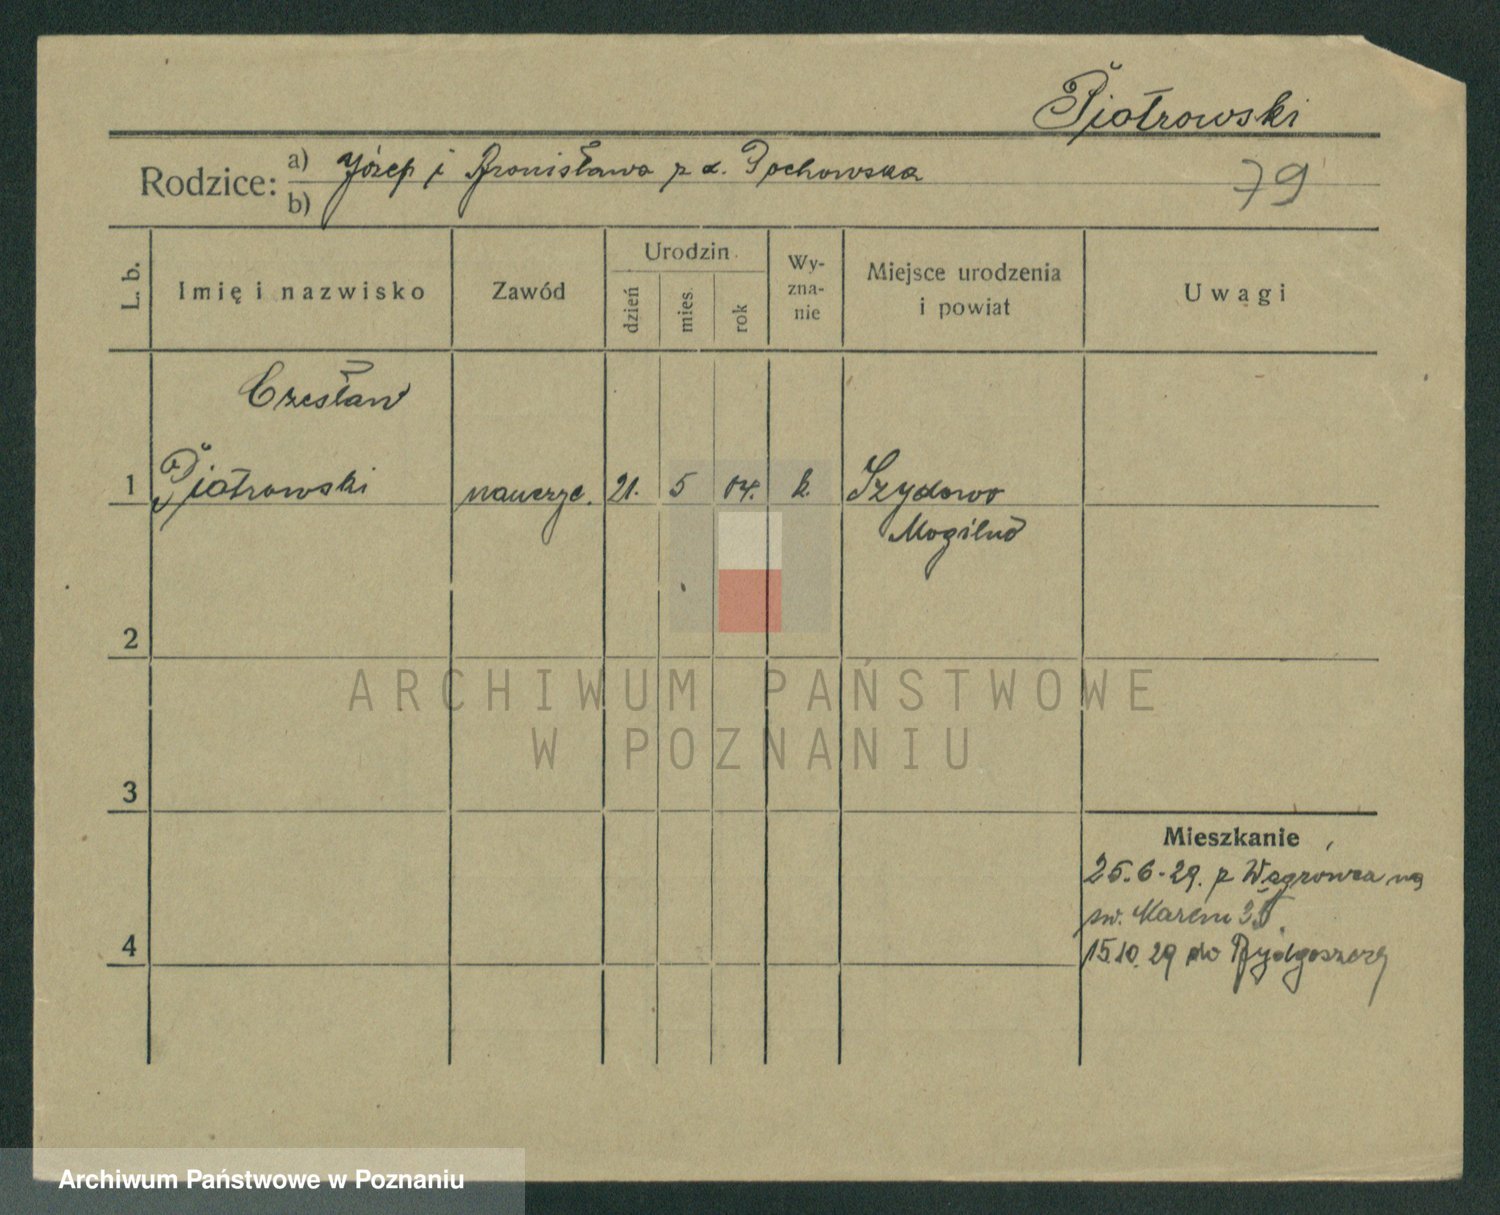 Piotrowski
Rodzice: a) Józef i Bronisława z d. Pochowska
b)
79
L. b.
Imię i nazwisko
Zawód
Urodzin
dzień
mies.
rok
Wy-
zna-
nie
Miejsce urodzenia
i powiat
Uwagi
Czesław
1 Piotrowski nauczyc. 21. 5 04. k. Szydowo
Mogilno
2
3
4
ARCHIWUM PAŃSTWOWE
W POZNANIU
Mieszkanie
25.6.29. z Wągrówca na
św. Marcin
15.10.29 do Bydgoszczy
Archiwum Państwowe w Poznaniu